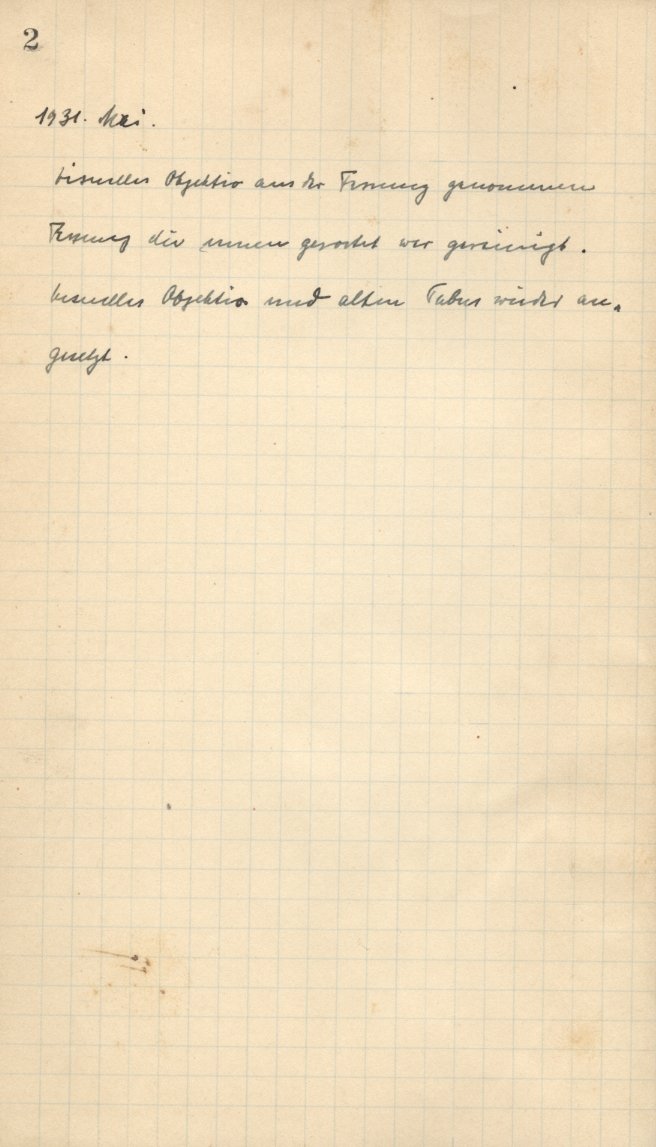 2
1931. Mai.
visuelles Objektiv aus der Fassung genommen
Fassung die innen gerostet war gereinigt.
visuelles Objektiv und alten Tubus wieder an-
gesetzt.